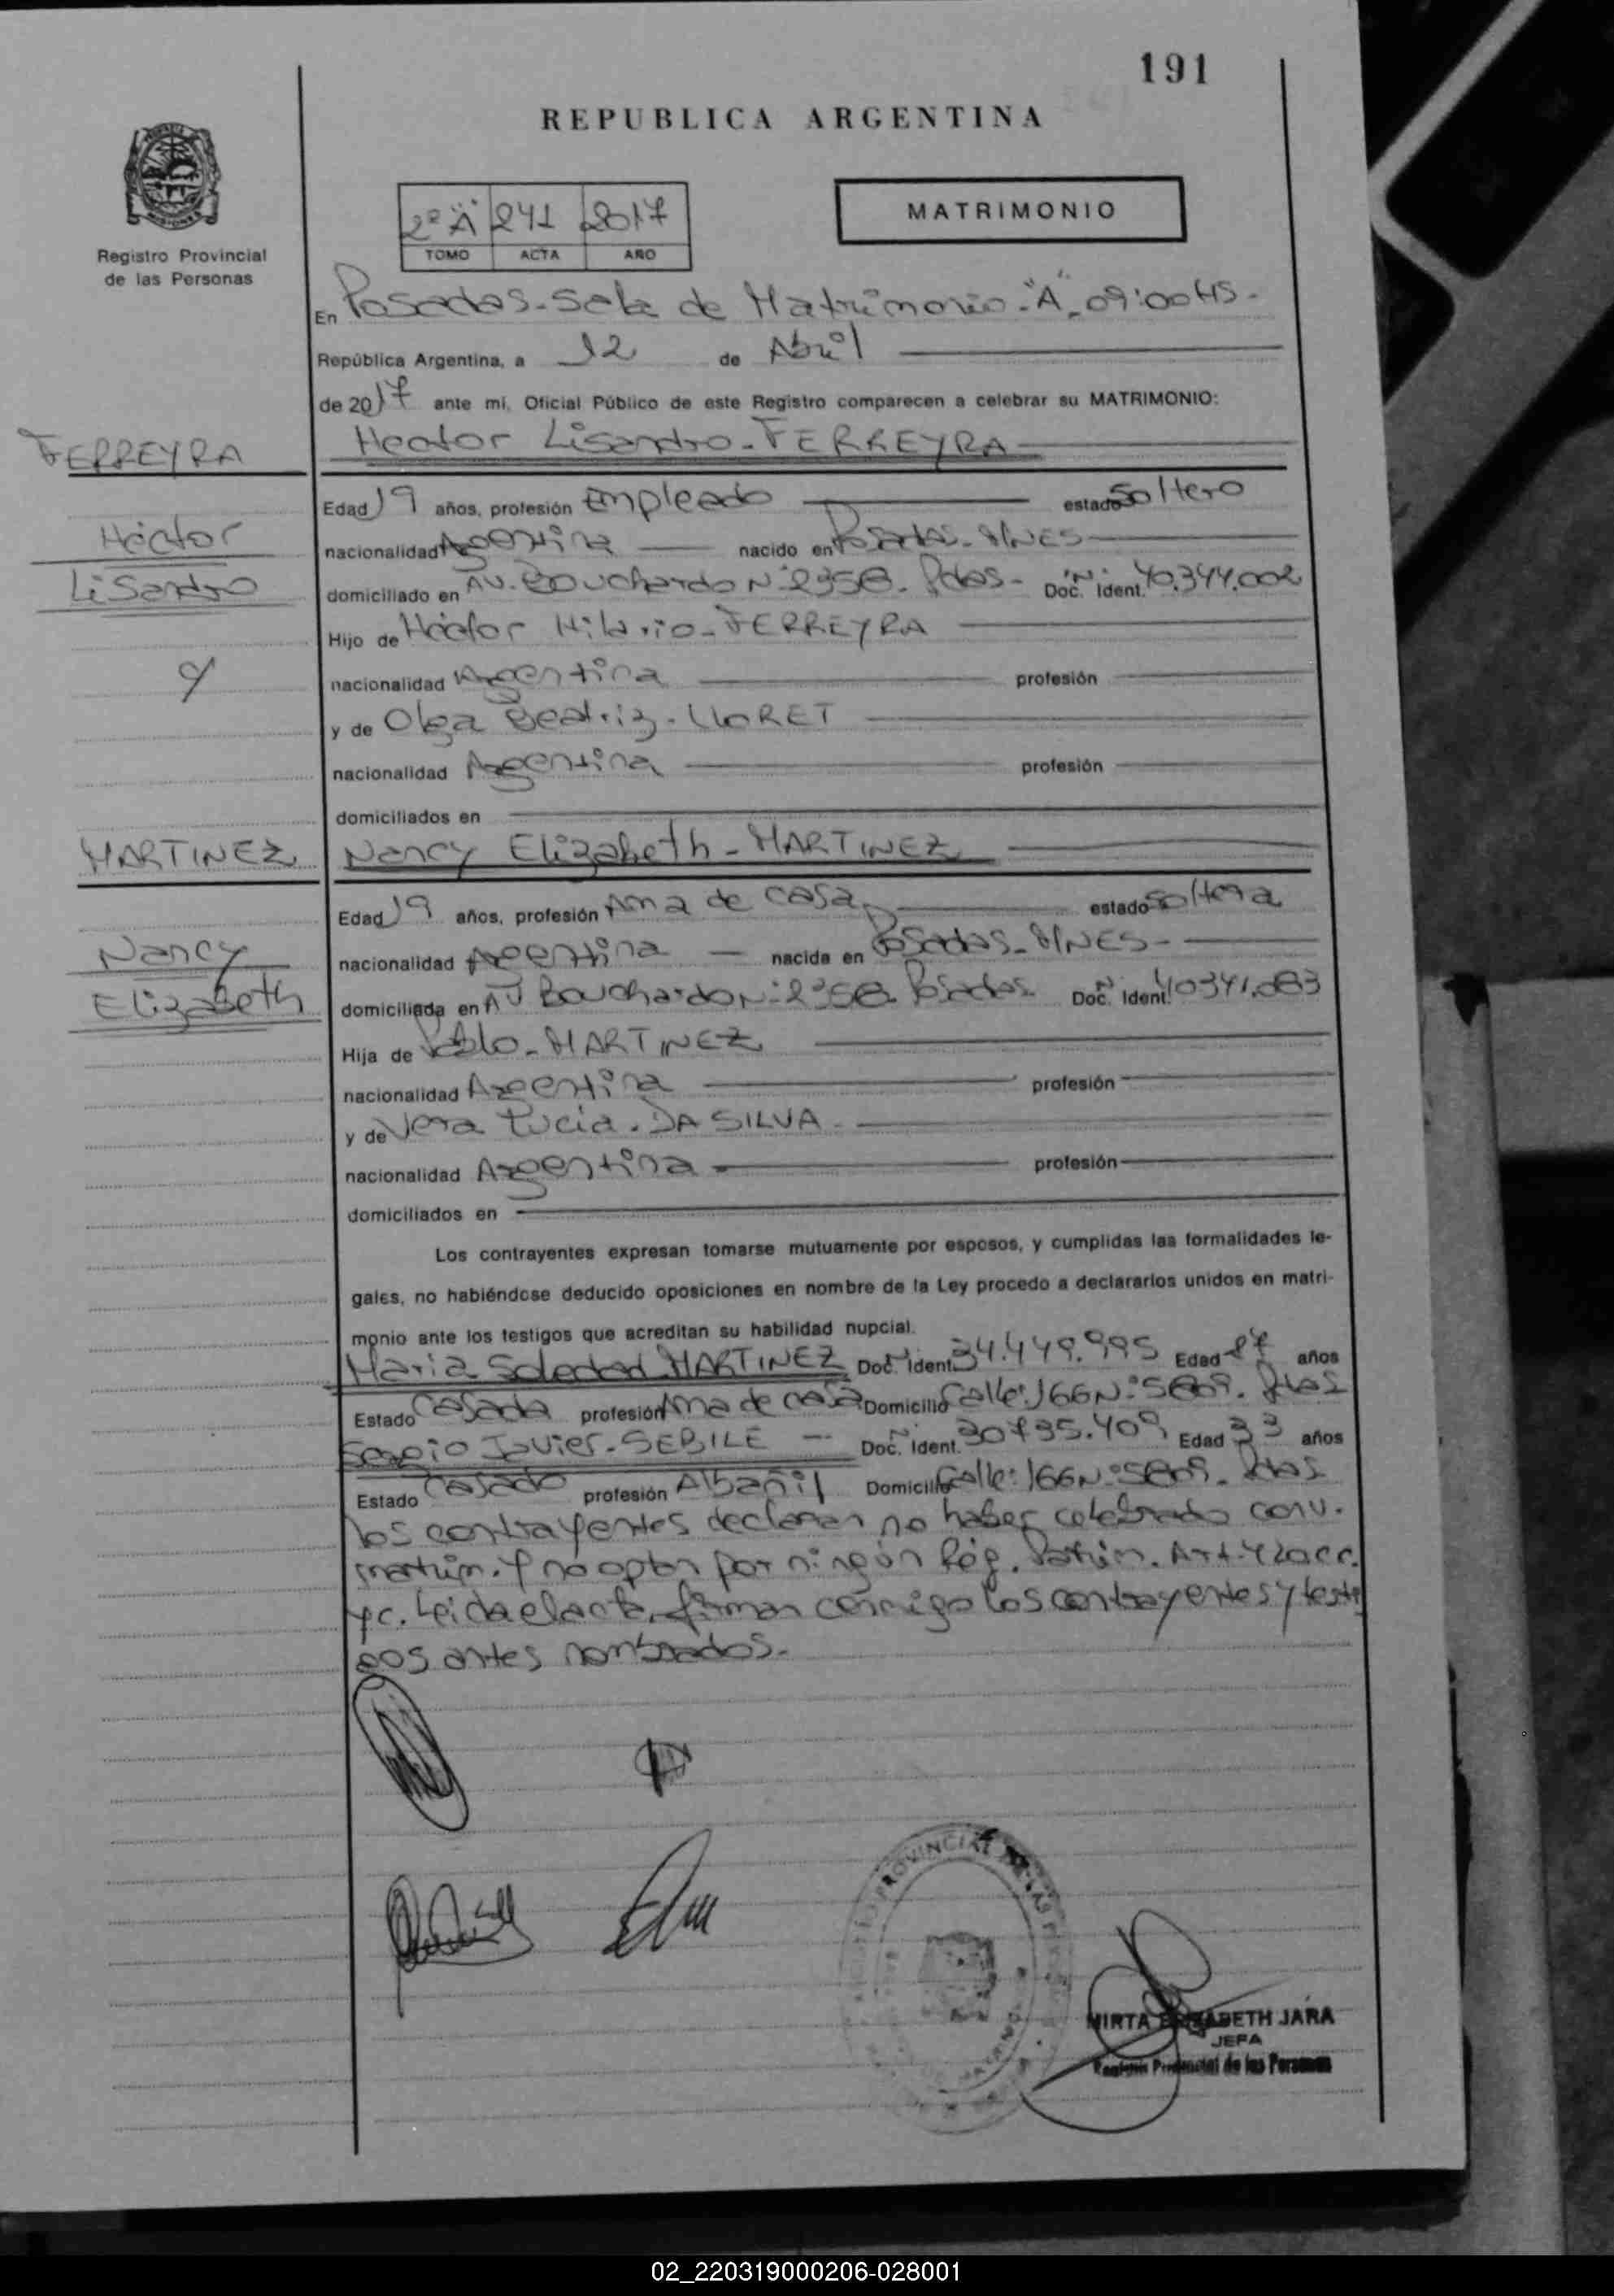 191
REPUBLICA ARGENTINA
Registro Provincial
de las Personas
2º "A" 241 2017
TOMO ACTA AÑO
MATRIMONIO
En Posadas - Sala de Matrimonio - "A" - 09:00 HS -
República Argentina, a 12 de Abril
de 2017 ante mí, Oficial Público de este Registro comparecen a celebrar su MATRIMONIO:
FERREYRA
Hector Lisandro - FERREYRA
Edad 19 años, profesión Empleado estado Soltero
Héctor
nacionalidad Argentina nacido en Posadas - MNES -
Lisandro
domiciliado en AV. Bouchardo Nº 2958 - Pdas - Doc. Nº Ident. 40.344.002
Hijo de Héctor Hilario - FERREYRA
y
nacionalidad Argentina profesión
y de Olga Beatriz - LLORET
nacionalidad Argentina profesión
domiciliados en
MARTINEZ
Nancy Elizabeth - MARTINEZ
Edad 19 años, profesión Ama de casa estado soltera
Nancy
nacionalidad Argentina - nacida en Posadas - MNES -
Elizabeth
domiciliada en AV Bouchardo Nº 2958 Posadas Doc. Nº Ident. 40341.083
Hija de Pablo - MARTINEZ
nacionalidad Argentina profesión
y de Vera Lucia - DA SILVA -
nacionalidad Argentina - profesión
domiciliados en
Los contrayentes expresan tomarse mutuamente por esposos, y cumplidas las formalidades le-
gales, no habiéndose deducido oposiciones en nombre de la Ley procedo a declararlos unidos en matri-
monio ante los testigos que acreditan su habilidad nupcial.
Maria Soledad MARTINEZ Doc. Nº Ident. 34.449.995 Edad 27 años
Estado Casada profesión Ama de casa Domicilio Calle: 166 Nº 5809 - Pdas
Sergio Javier - SEBILE - Doc. Nº Ident. 30735.409 Edad 33 años
Estado Casado profesión Albañil Domicilio Calle: 166 Nº 5809 - Pdas
los contrayentes declaran no haber celebrado conv.
matrim. y no optan por ningún Rég. Patrim. Art. 420 CC.
yC. Leida el acta, firman conmigo los contrayentes y testi
gos antes nombrados.-
PROVINCIAL DE LAS
MIRTA ELIZABETH JARA
JEFA
Registro Provincial de las Personas
02_220319000206-028001